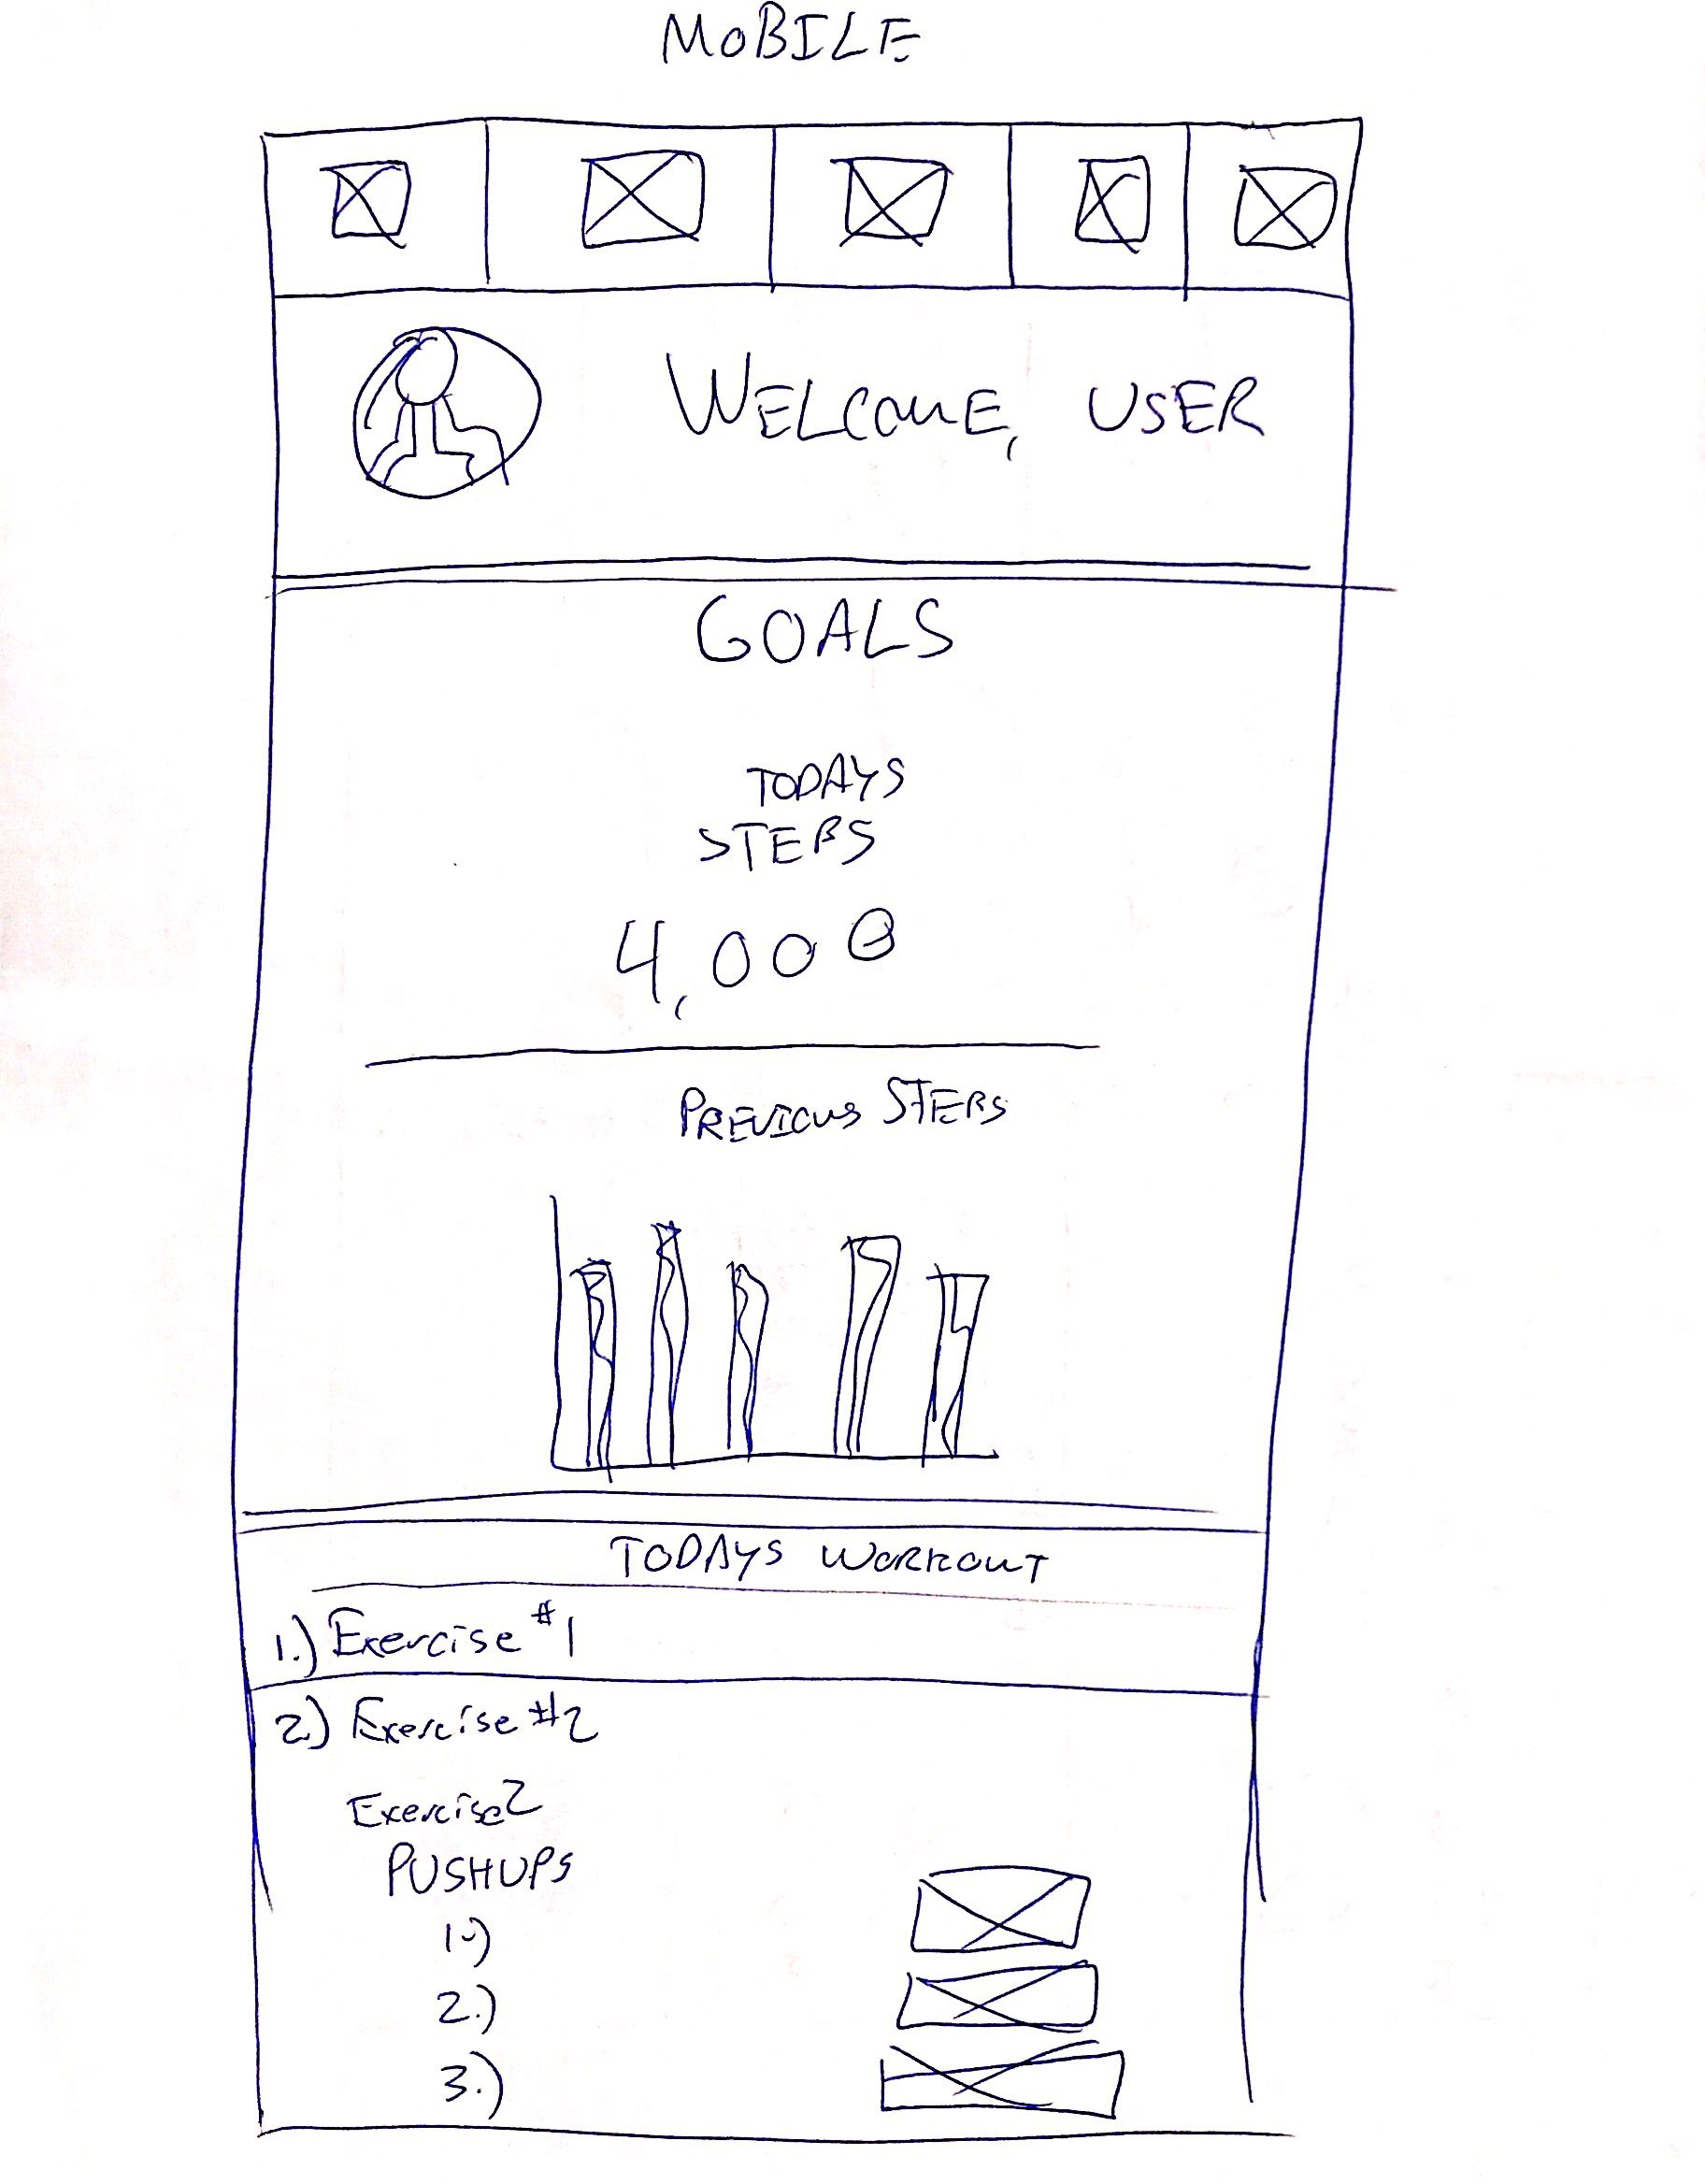 MOBILE
WELCOME, USER
GOALS
TODAYS
STEPS
4,000
PREVIOUS STEPS
TODAYS WORKOUT
1.) Exercise #1
2.) Exercise #2
Exercise 2
PUSHUPS
1.)
2.)
3.)